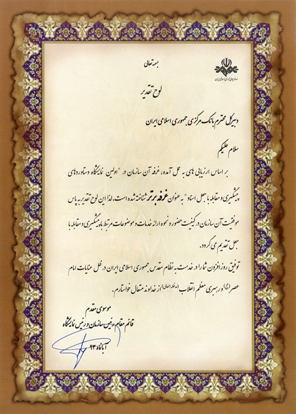 بسمه تعالی
لوح تقدیر
دبیرکل محترم بانک مرکزی جمهوری اسلامی ایران
سلام علیکم
بر اساس ارزیابی های به عمل آمده، غرفه آن سازمان در "اولین نمایشگاه دستاوردهای
پیشگیری و مقابله با جعل اسناد" به عنوان غرفه برتر شناخته شده است. لذا این لوح تقدیر به پاس
موفقیت آن سازمان در کیفیت حضور و نحوه ارائه خدمات و موضوعات مرتبط با پیشگیری و مقابله با
جعل تقدیم می گردد.
توفیق روزافزون شما را در خدمت به نظام مقدس جمهوری اسلامی ایران در ظل عنایات امام
عصر و رهبری معظم انقلاب از خداوند متعال خواستارم.
موسوی مقدم
قائم مقام سازمان و رئیس نمایشگاه
آبانماه ۹۳